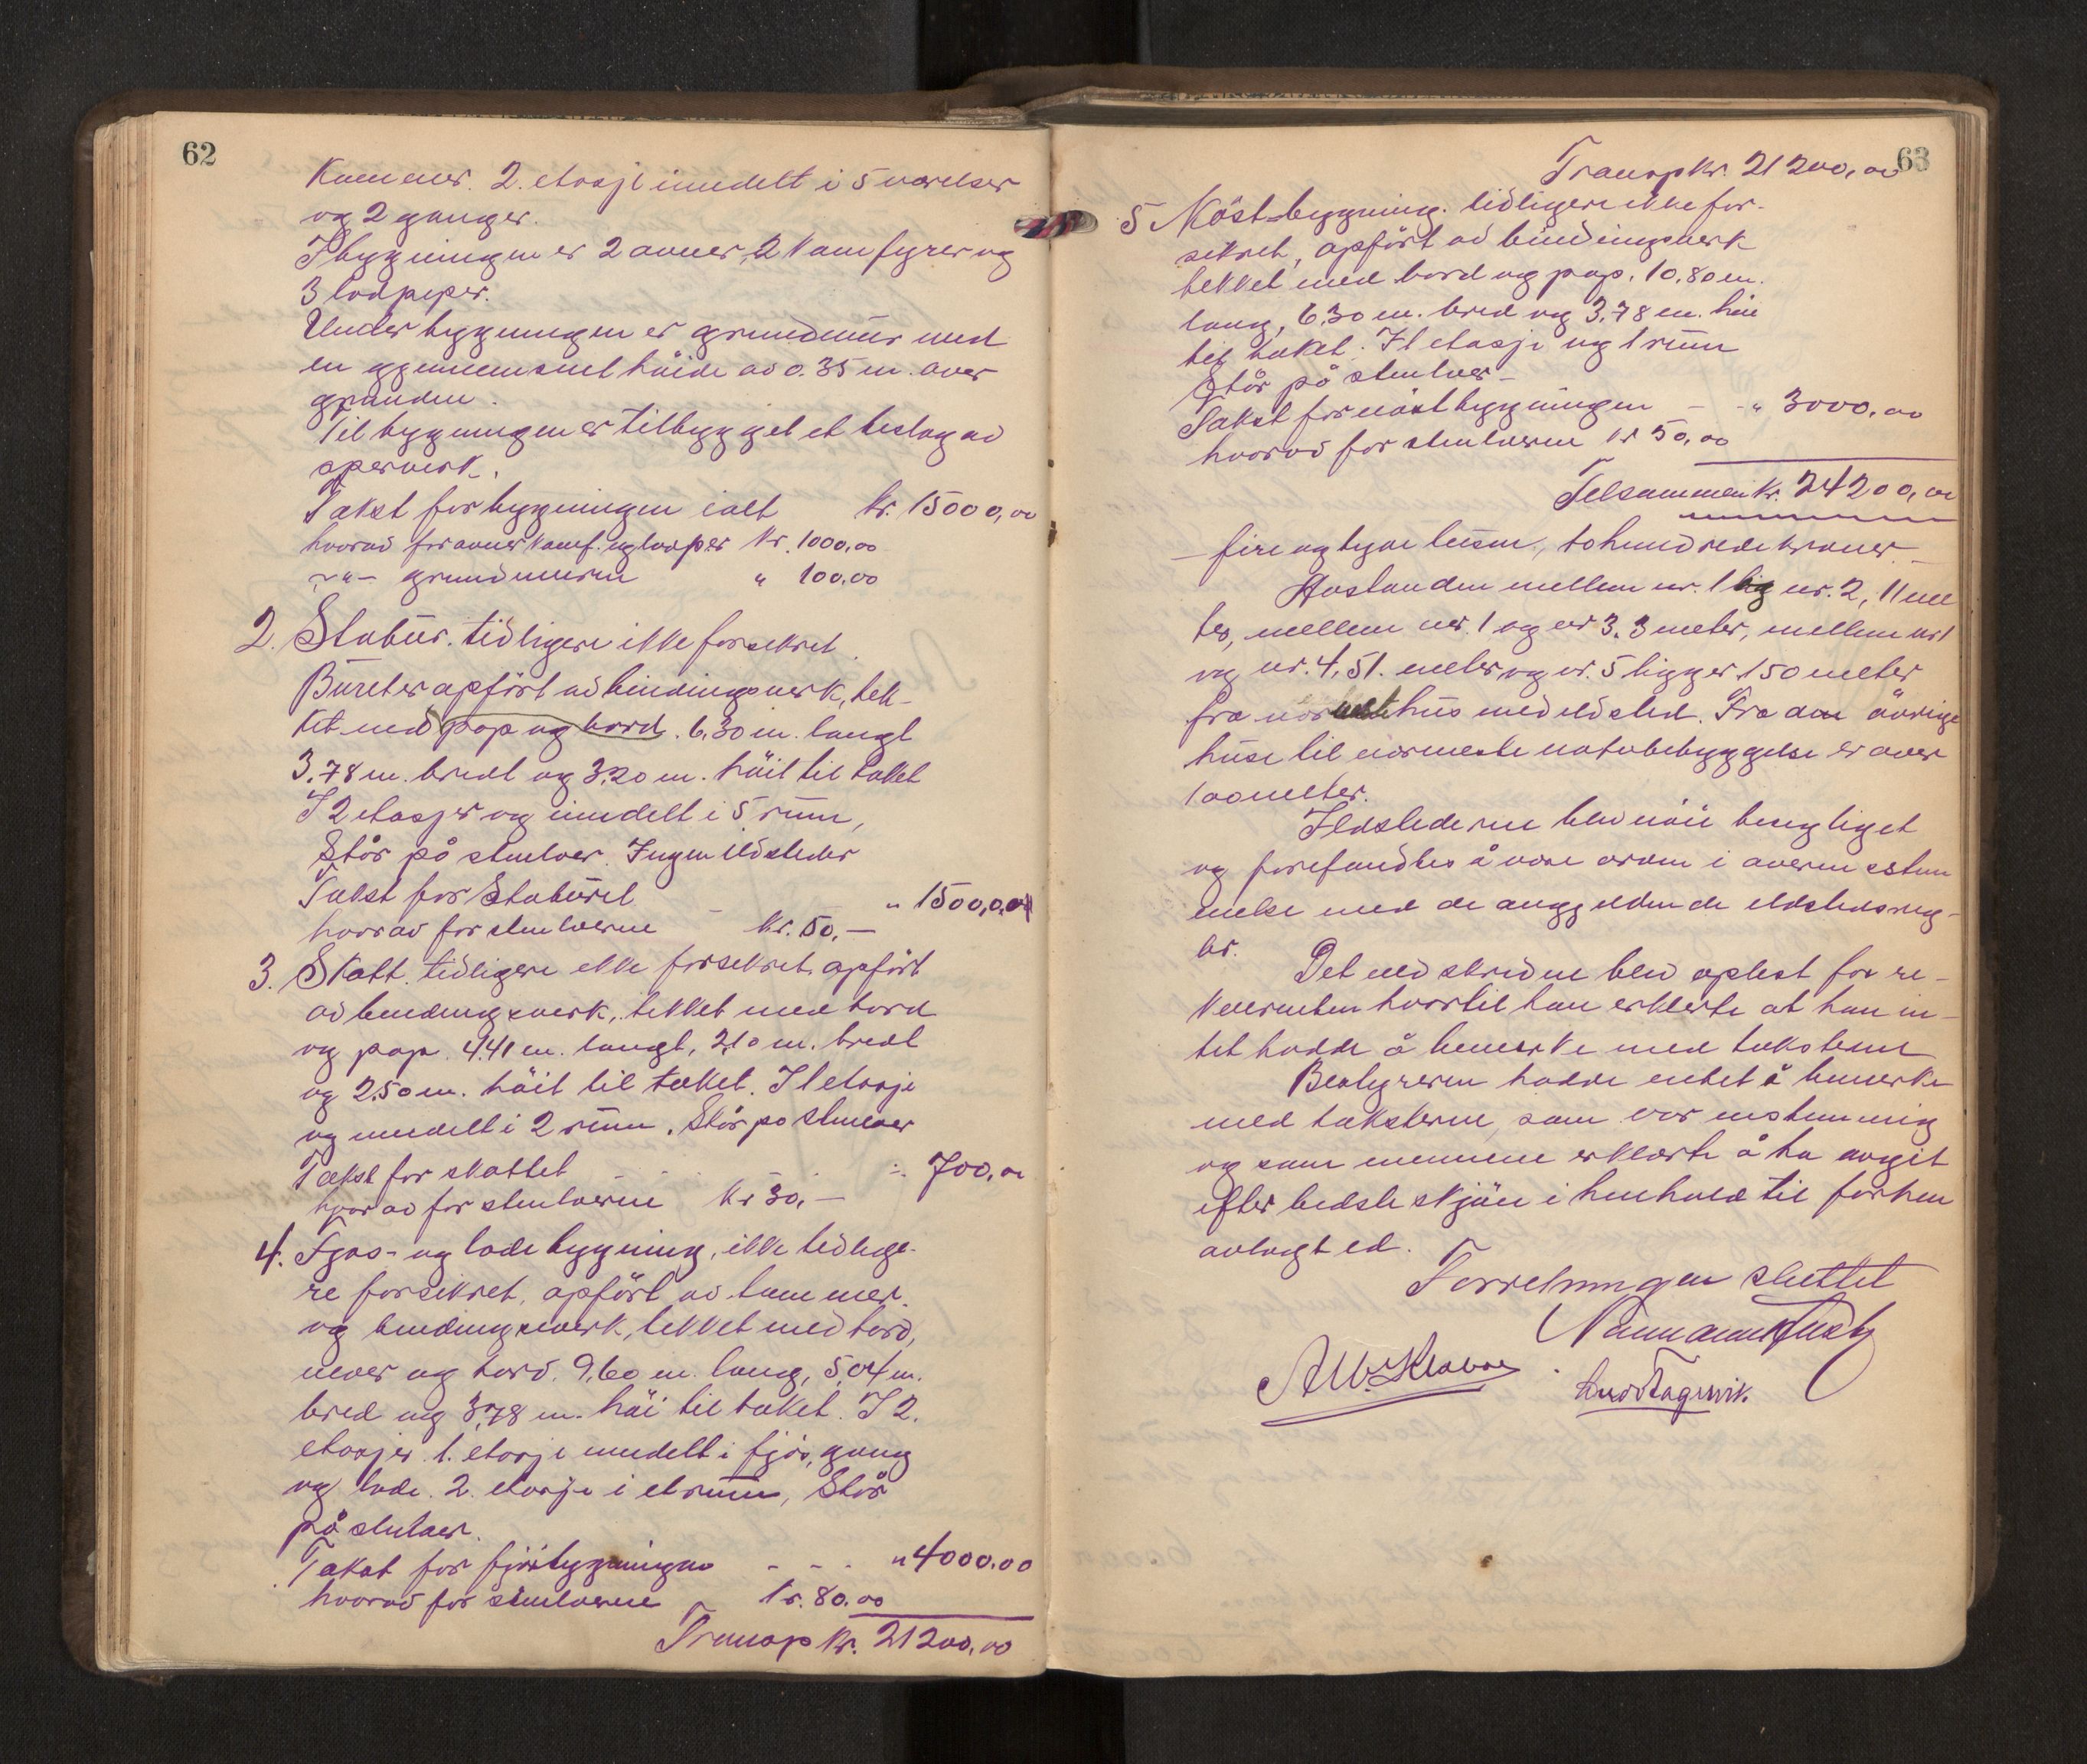 62
Kammer. 2. etasje inndelt i 5 værelser
og 2 ganger.
I bygningen er 2 ovner, 2 kamfyrer og
3 lodpiper.
Under bygningen er grundmur med
en gjennemsnitl höide av 0.35 m. over
grunden.
Til bygningen er tilbygget et bislag av
sperverk.
Takst for bygningen ialt kr. 15000,00
hvorav for ovner kamf. og lodpiper kr. 1000,00
-"- grundmuren " 100,00
2. Stabur. tidligere ikke forsikret.
Buret er opfört av bindingsverk, tek-
ket med pap og bord. 6,30 m. langt
3,78 m. bredt og 3,20 m. höit til taket
I 2 etasjer og inndelt i 5 rum,
Står på stentver. Ingen ildsteder
Takst for Staburet - " 1500,00
hvorav for stentverne kr. 50,—
3. Skått. tidligere ikke forsikret, opfört
av bindingsverk, tekket med bord
og pap. 4,41 m. langt, 2,10 m. bredt
og 2,50 m. höit til taket. I 1 etasje
og inndelt i 2 rum. Står på stentver
Takst for skottet - - - " 700,00
hvorav for stentverne kr 30,—
4. Fjøs- og ladebygning, ikke tidlige-
re forsikret, opfört av tømmer
og bindingsverk, tekket med tord,
never og bord. 9,60 m. lang, 5,04 m.
bred og 3,78 m. höi til taket. I 2.
etasjer 1. etasje inndelt i fjös, gang
og lade. 2. etasje i et rum, Står
på stentver.
Takst for fjösbygningen - - - " 4000,00
hvorav for stentverne kr. 80,00
Transp kr. 21200,00
63
Transp kr. 21200,00
5 Nöst-bygning. tidligere ikke for-
sikret, opfört av bindingsverk
tekket med bord og pap. 10,80 m.
lang, 6,30 m. bred og 3,78 m. höi
til taket. I 1 etasje og 1 rum
Står på stentver -
Takst for nöstbygningen - - " 3000,00
hvorav for stentverne kr 50,00
Tilsammen kr. 24200,00
- fire og tyve tusen, tohundrede kroner -
Avstanden mellem nr. 1 og nr. 2, 11 me
ter, mellem nr. 1 og nr 3. 3 meter, mellem nr 1
og nr. 4, 51. meter og nr. 5 ligger 150 meter
fra hus med ildsted. Fra den övrige
huse til nærmeste nabobebyggelse er over
100 meter.
Ildstederne blev nöie besigtiget
og forefandtes å være orden i overensstem
melse med de anggjeldende ildstedsreg-
ler.
Det nedskrevne blev oplest for re-
kvirenten hvortil han erklerte at han in-
tet hadde å bemerke med taksterne
Bestyreren hadde intet å bemerke
med taksterne, som var enstemmig
og som mennene erklærte å ha avgit
efter bedste skjön i henhold til forhen
avlagt ed.
Forretningen sluttet